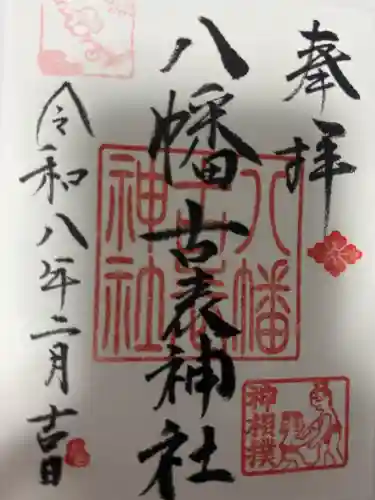 奉拝
八幡古表神社
令和八年二月吉日
八幡古表神社
神相撲